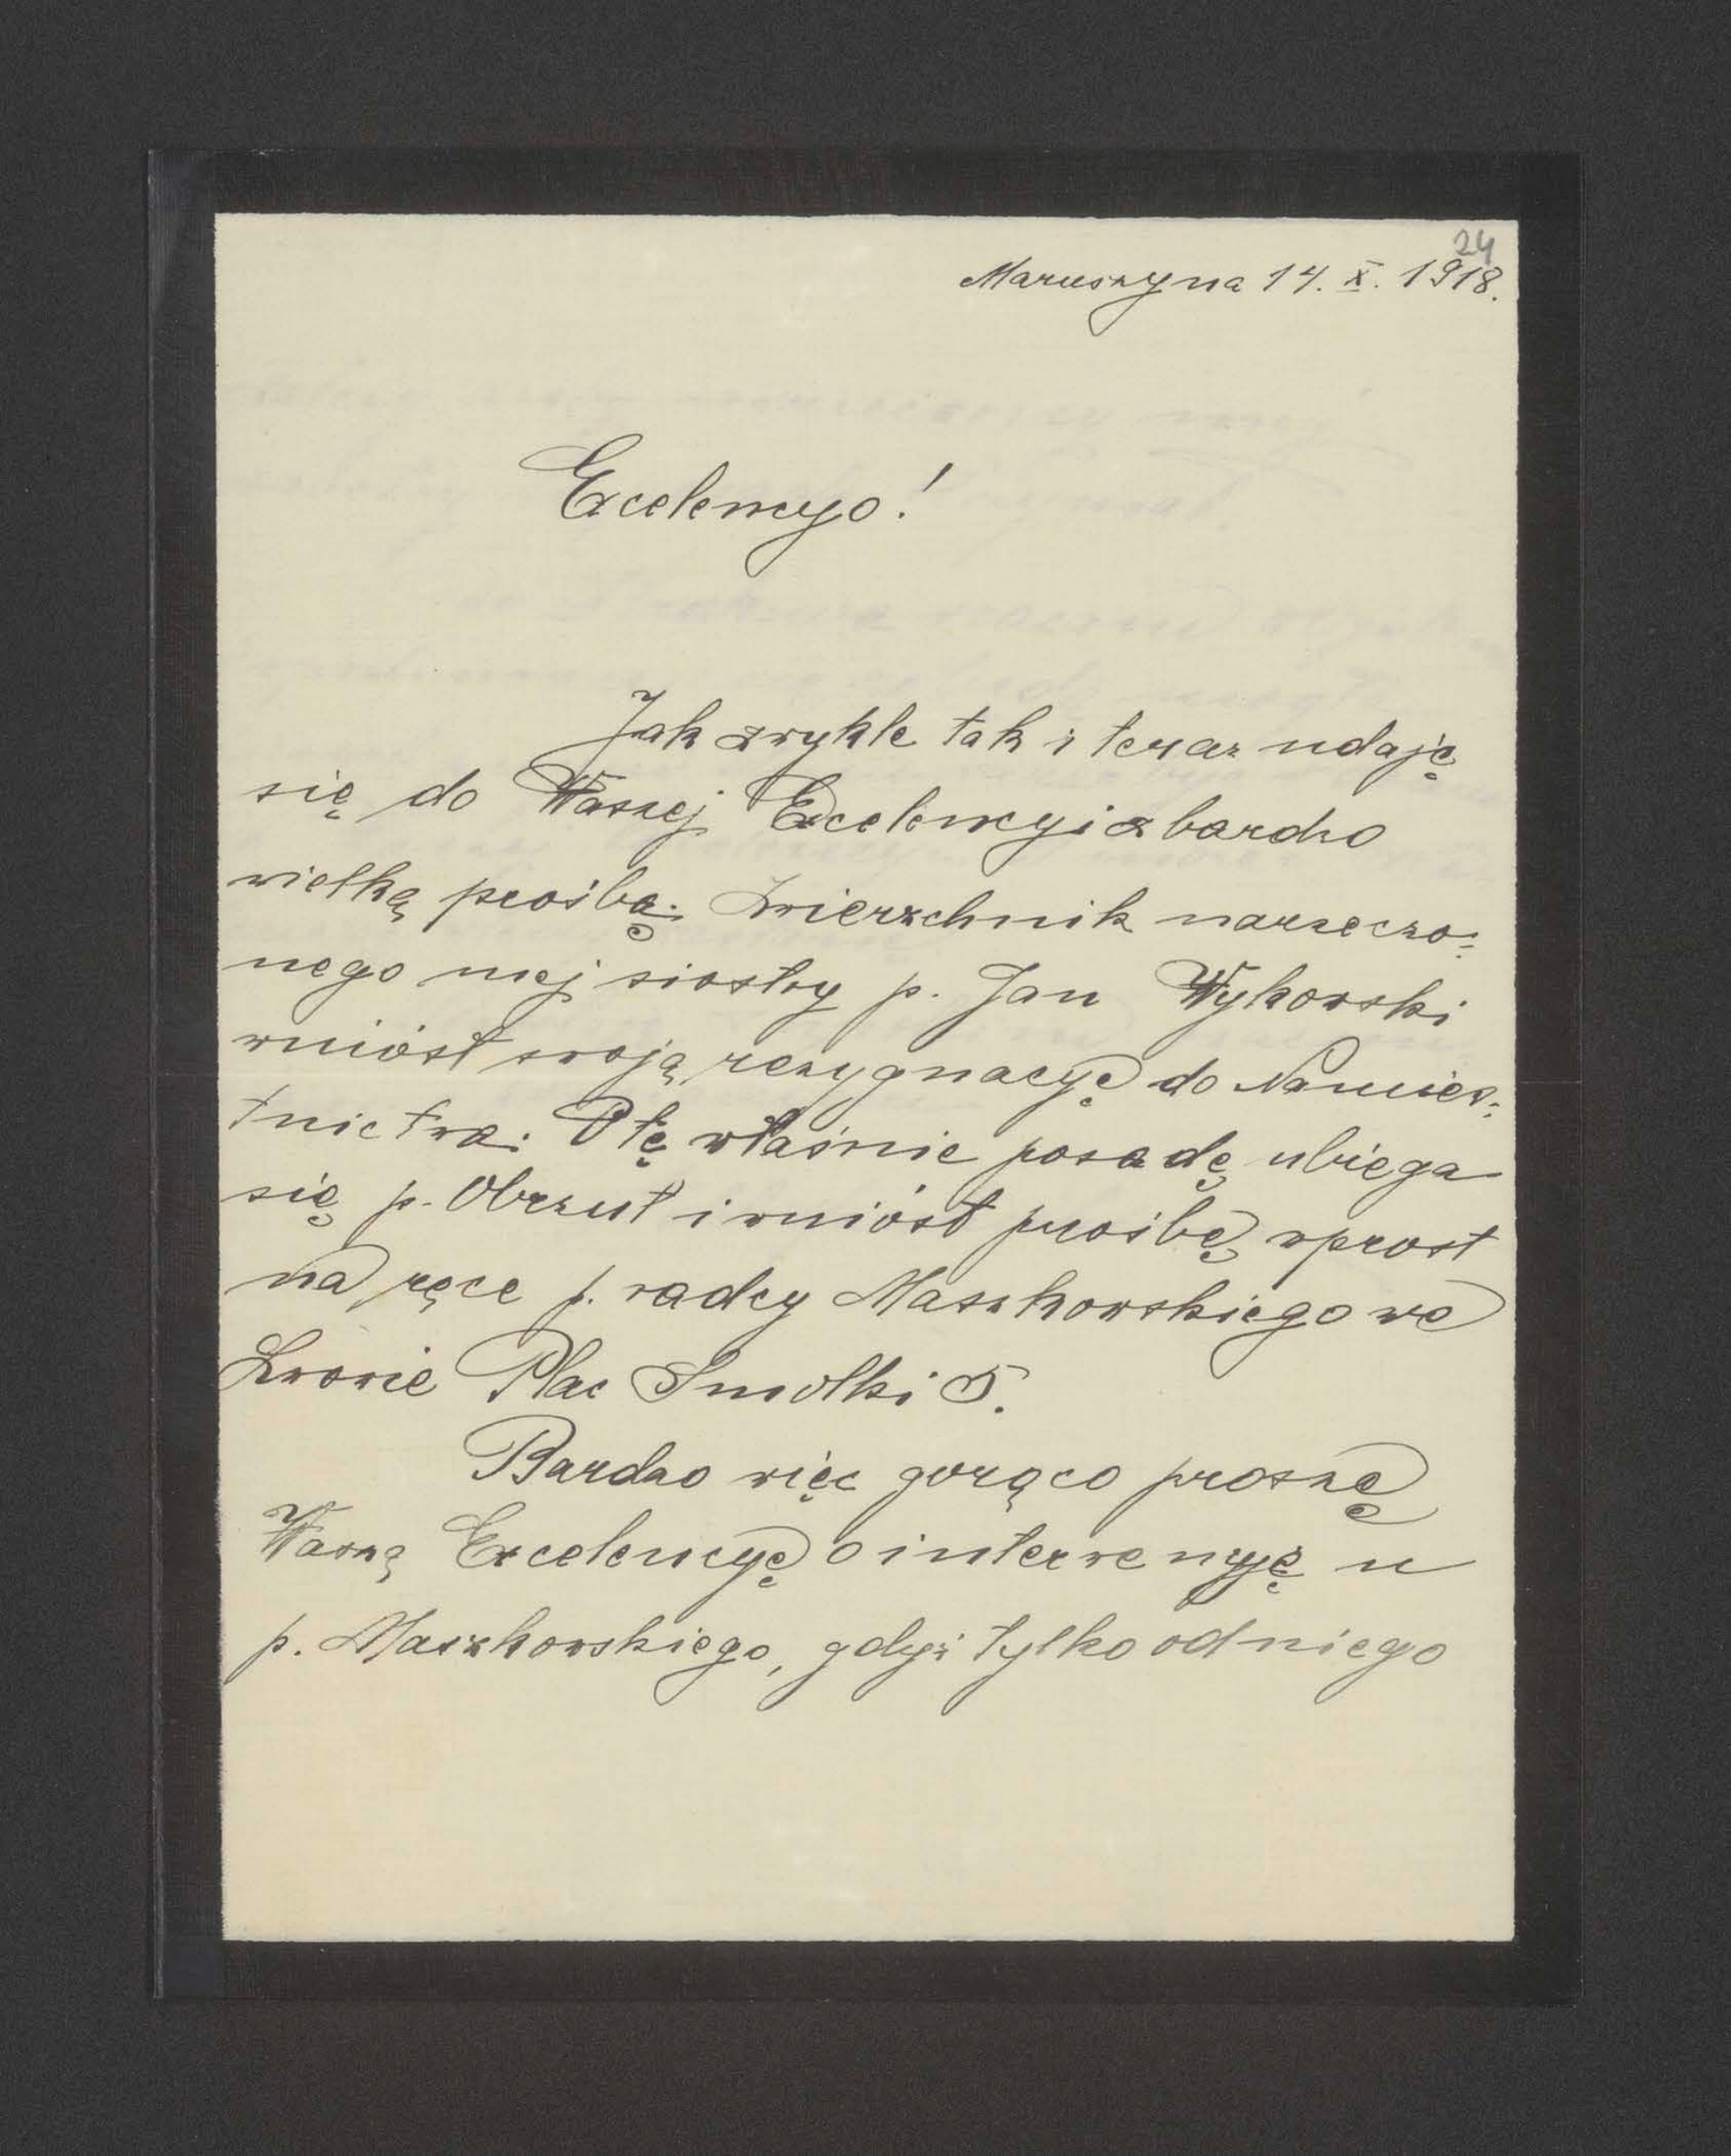 24
Maruszyna 14. X. 1918.
Excelencyo!
Jak zwykle tak i teraz udaję
się do Waszej Excelencyi z bardzo
wielką prośbą. Zwierzchnik narzeczo-
nego mej siostry p. Jan Wykowski
wniósł swoją rezygnacyę do Namies-
tnictwa. O tę właśnie posadę ubiega
się p. Obrzut i wniósł prośbę wprost
na ręce p. radcy Maszkowskiego we
Lwowie Plac Smolki 5.
Bardzo więc gorąco proszę
Waszą Excelencyę o interwenyę u
p. Maszkowskiego, gdyż tylko od niego